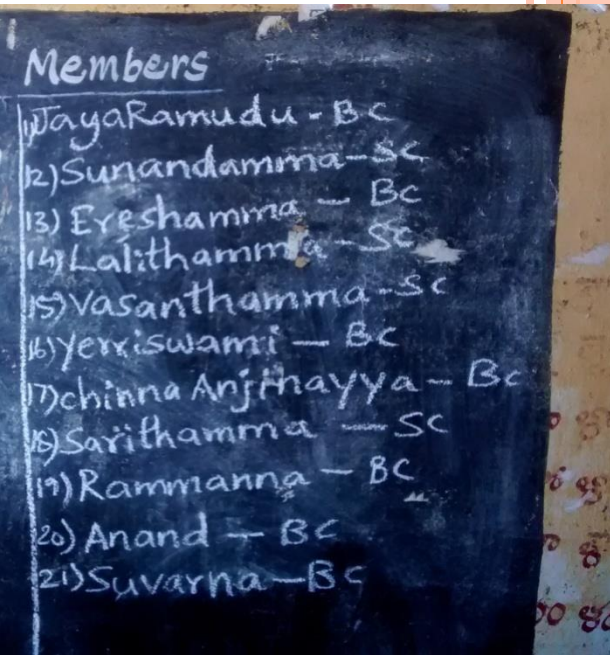 Members
11) JayaRamudu - BC
12) Sunandamma - SC
13) Ereshamma - BC
14) Lalithamma - SC
15) Vasanthamma - SC
16) Yerriswami - BC
17) chinna Anjinayya - BC
18) Sarithamma - SC
19) Rammanna - BC
20) Anand - BC
21) Suvarna - BC